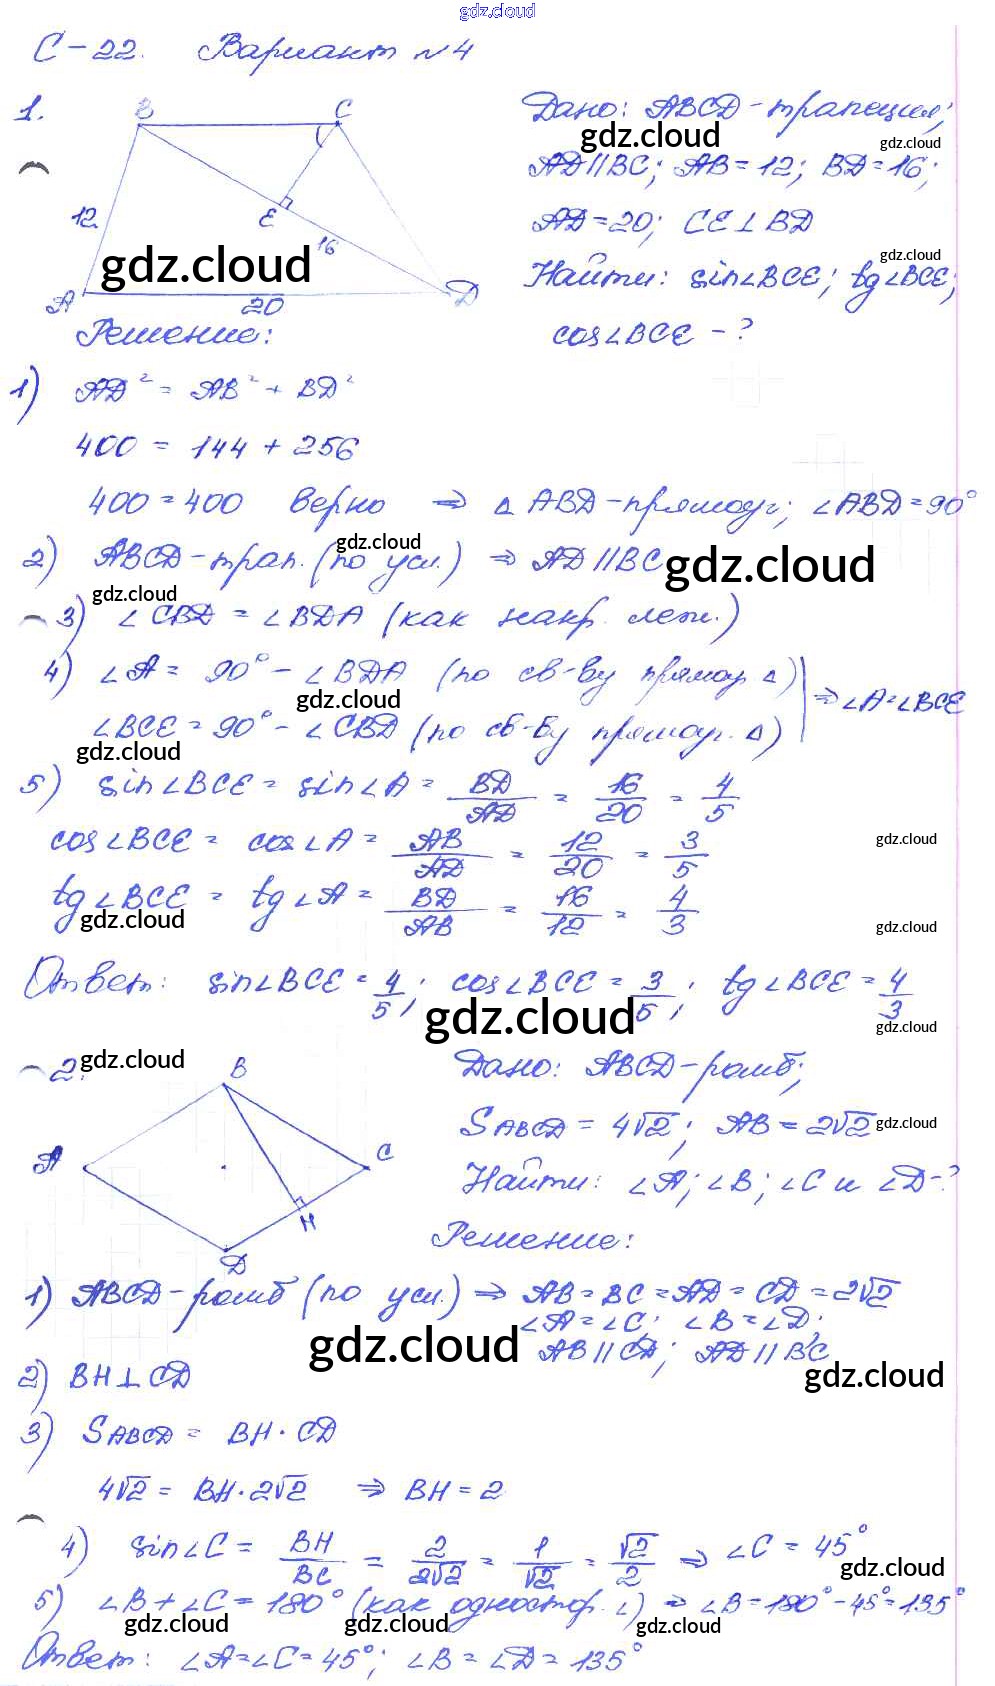 gdz.cloud
С-22. Вариант №4
1.
B C
Дано: ABCD - трапеция;
gdz.cloud gdz.cloud
AD || BC; AB = 12; BD = 16;
12 E 16
AD = 20; CE ⊥ BD
gdz.cloud gdz.cloud
Найти: sin∠BCE; tg∠BCE;
A 20 D
cos∠BCE - ?
Решение:
1) AD² = AB² + BD²
400 = 144 + 256
400 = 400 верно ⇒ △ ABD - прямоуг; ∠ABD = 90°
gdz.cloud
2) ABCD - трап. (по усл.) ⇒ AD || BC
gdz.cloud
gdz.cloud
3) ∠CBD = ∠BDA (как накр. леж.)
4) ∠A = 90° - ∠BDA (по св-ву прямоуг △)
gdz.cloud
∠BCE = 90° - ∠CBD (по св-ву прямоуг. △) ⇒ ∠A = ∠BCE
gdz.cloud
5) sin∠BCE = sin∠A = BD/AD = 16/20 = 4/5
cos∠BCE = cos∠A = AB/AD = 12/20 = 3/5
gdz.cloud
tg∠BCE = tg∠A = BD/AB = 16/12 = 4/3
gdz.cloud gdz.cloud
Ответ: sin∠BCE = 4/5; cos∠BCE = 3/5; tg∠BCE = 4/3
gdz.cloud gdz.cloud
2. gdz.cloud
B
Дано: ABCD - ромб;
S ABCD = 4√2; AB = 2√2
gdz.cloud
A C
Найти: ∠A; ∠B; ∠C и ∠D - ?
H
D
Решение:
1) ABCD - ромб (по усл.) ⇒ AB = BC = AD = CD = 2√2
∠A = ∠C; ∠B = ∠D;
gdz.cloud
AB || CD; AD || BC
gdz.cloud
2) BH ⊥ CD
3) S ABCD = BH · CD
4√2 = BH · 2√2 ⇒ BH = 2
4) sin∠C = BH/BC = 2/2√2 = 1/√2 = √2/2 ⇒ ∠C = 45°
gdz.cloud
5) ∠B + ∠C = 180° (как одностор. ∠) ⇒ ∠B = 180° - 45° = 135°
gdz.cloud gdz.cloud
Ответ: ∠A = ∠C = 45°; ∠B = ∠D = 135°